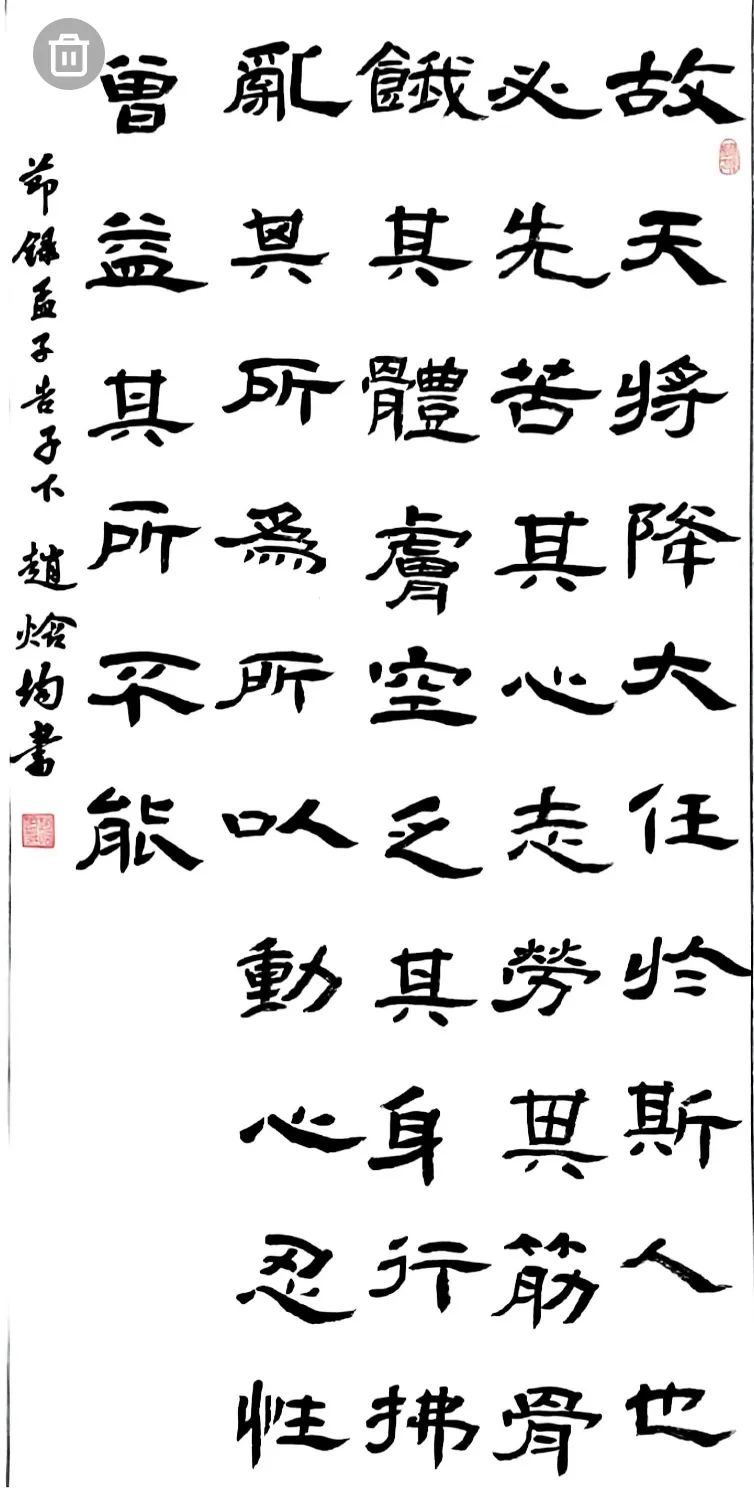 故天將降大任於斯人也
必先苦其心志勞其筋骨
餓其體膚空乏其身行拂
亂其所為所以動心忍性
曾益其所不能
節錄孟子告子下 趙焓均書